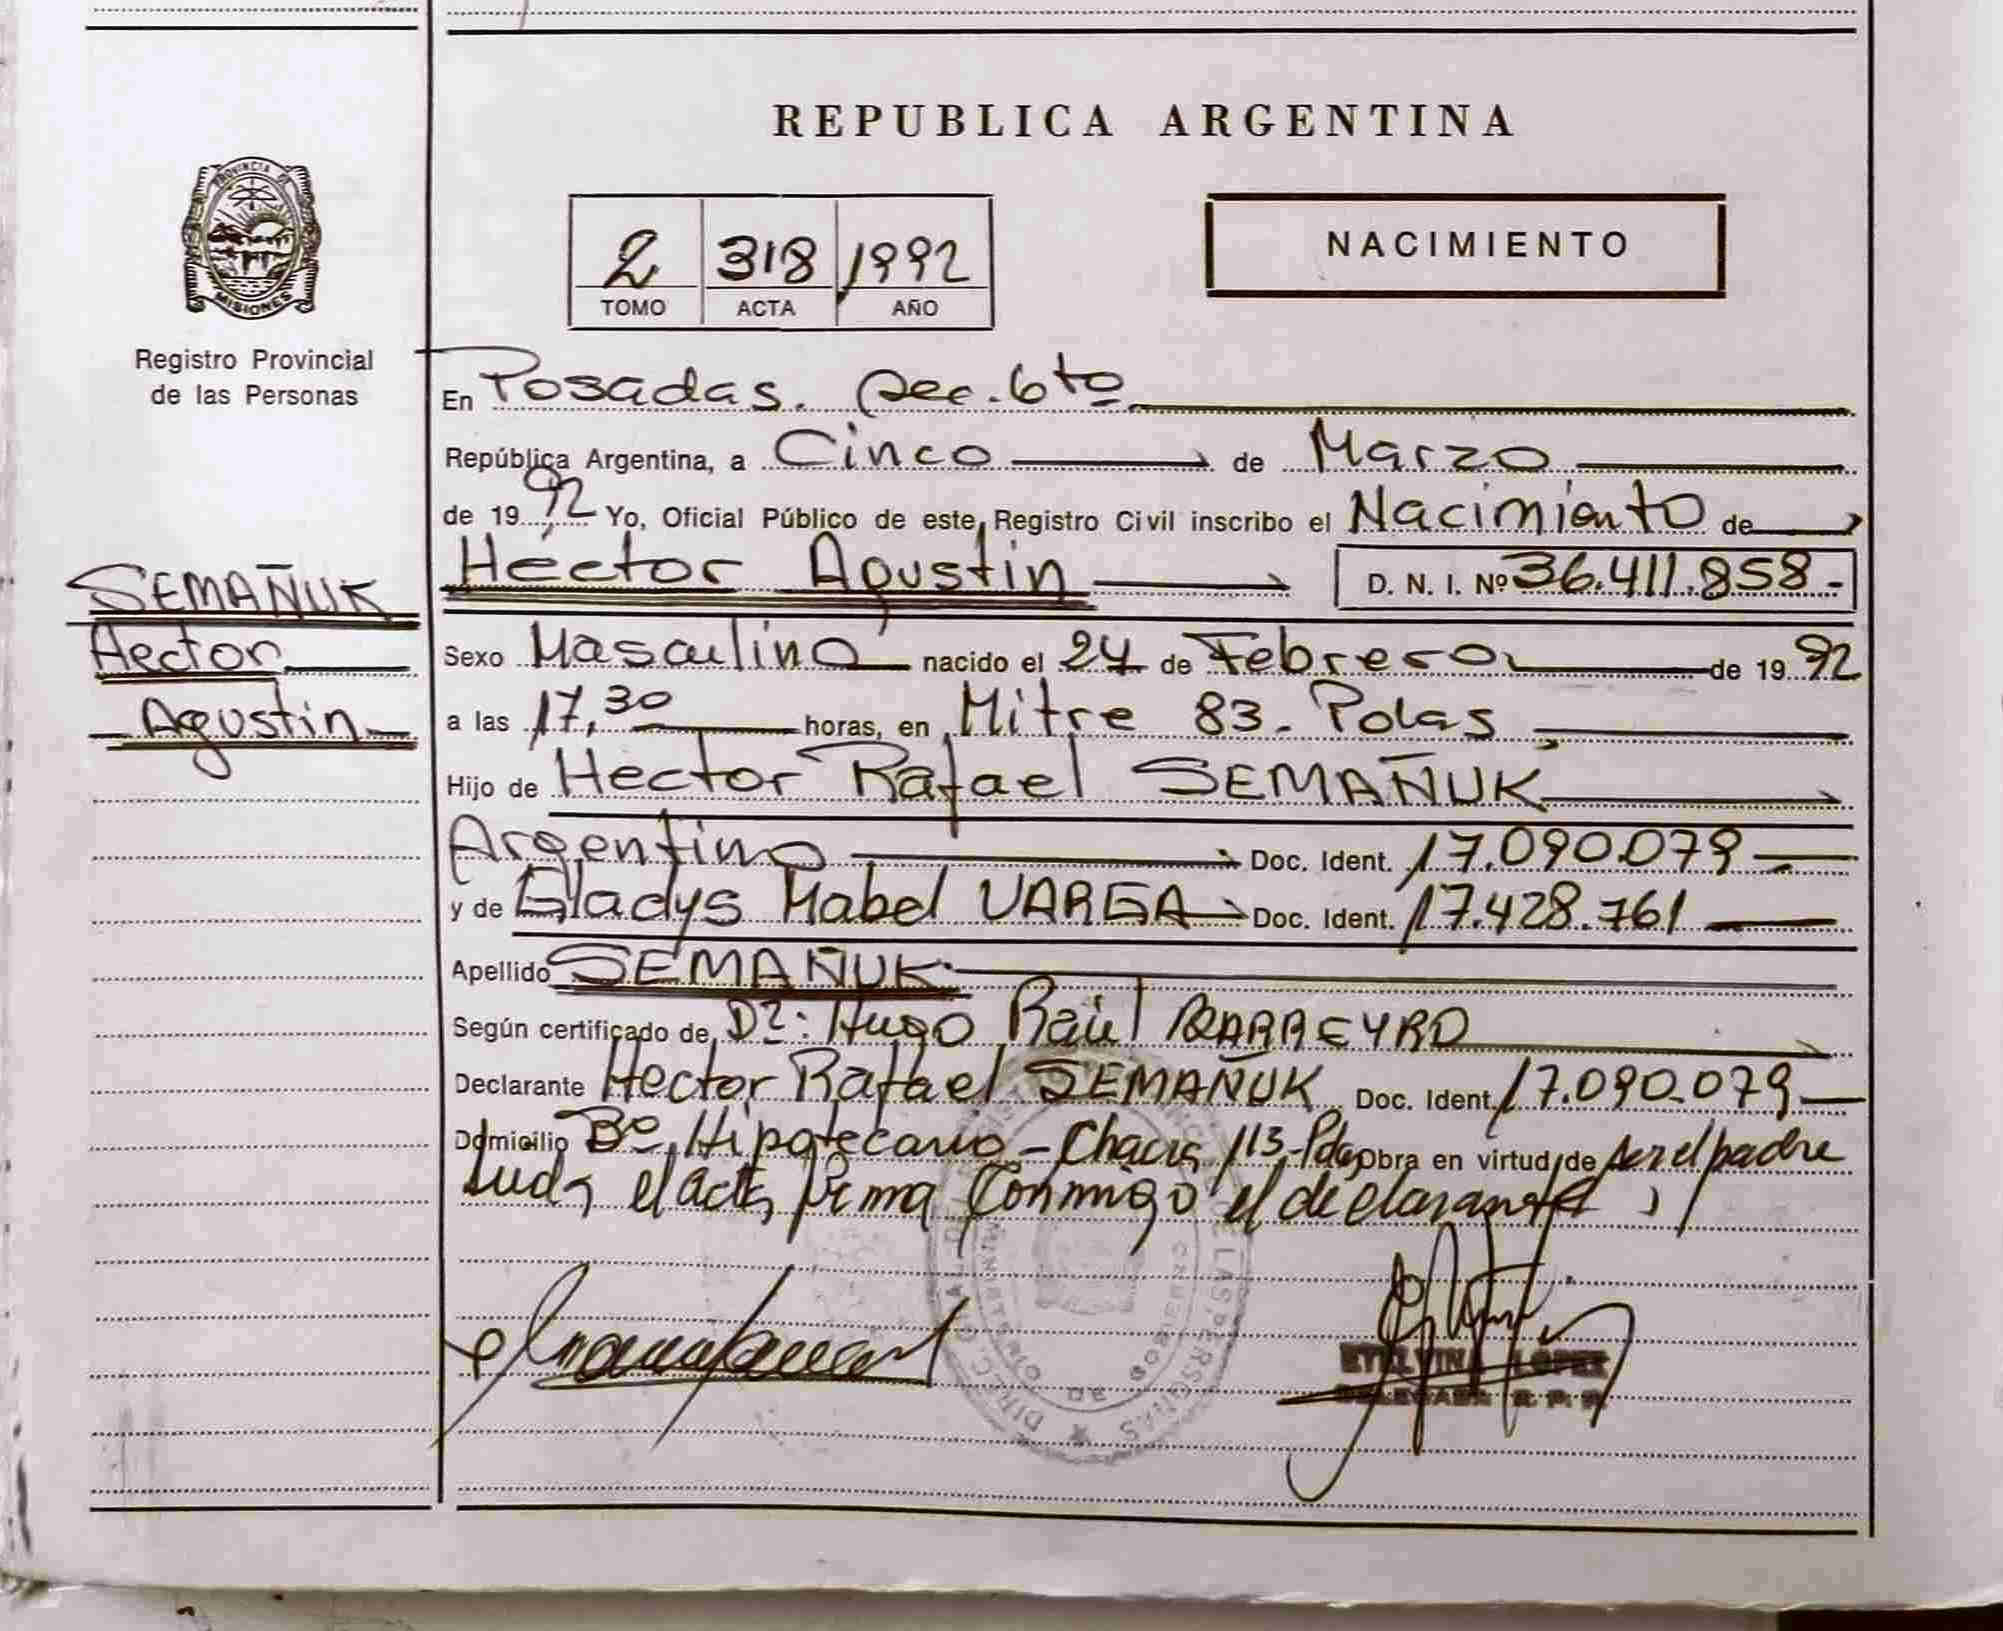 REPUBLICA ARGENTINA
PROVINCIA DE
MISIONES
Registro Provincial
de las Personas
2 318 1992
TOMO ACTA AÑO
NACIMIENTO
En Posadas. Sec. 6to
República Argentina, a Cinco de Marzo
de 1992 Yo, Oficial Público de este Registro Civil inscribo el Nacimiento de
Héctor Agustin D. N. I. Nº 36.411.858.-
SEMAÑUK
Hector
Agustin
Sexo Masculino nacido el 24 de Febrero de 1992
a las 17,30 horas, en Mitre 83. Pdas
Hijo de Hector Rafael SEMAÑUK
Argentino Doc. Ident. 17.090.079
y de Gladys Mabel VARGA Doc. Ident. 17.428.761
Apellido SEMAÑUK
Según certificado de Dr: Hugo Raúl BARREYRO
Declarante Hector Rafael SEMAÑUK Doc. Ident. 17.090.079
Domicilio Bº Hipotecario - Chacra 113-Pdas Obra en virtud de ser el padre
Leida el acta firma conmigo el declarante
MINISTERIO DE GOBIERNO
ETELVINA LOPEZ
DELEGADA R. P. P.